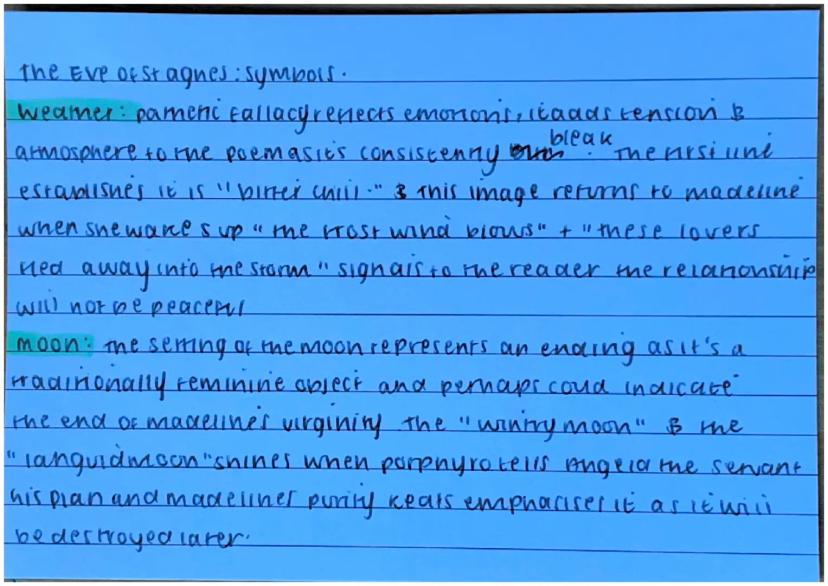 The Eve of St Agnes: symbols.
Weather: pathetic fallacy reflects emotions, it adds tension &
atmosphere to the poem as it's consistently bleak. The first line
establishes it is "bitter chill." & this image returns to madeline
when she wakes up "the frost wind blows" + "these lovers
fled away into the storm" signals to the reader the relationship
will not be peaceful
moon: the setting of the moon represents an ending as it's a
traditionally feminine object and perhaps coud indicate
the end of madeline's virginity the "wintry moon" & the
"languid moon" shines when porphyro tells Angela the servant
his plan and madelines purity keats emphasises it as it will
be destroyed later.